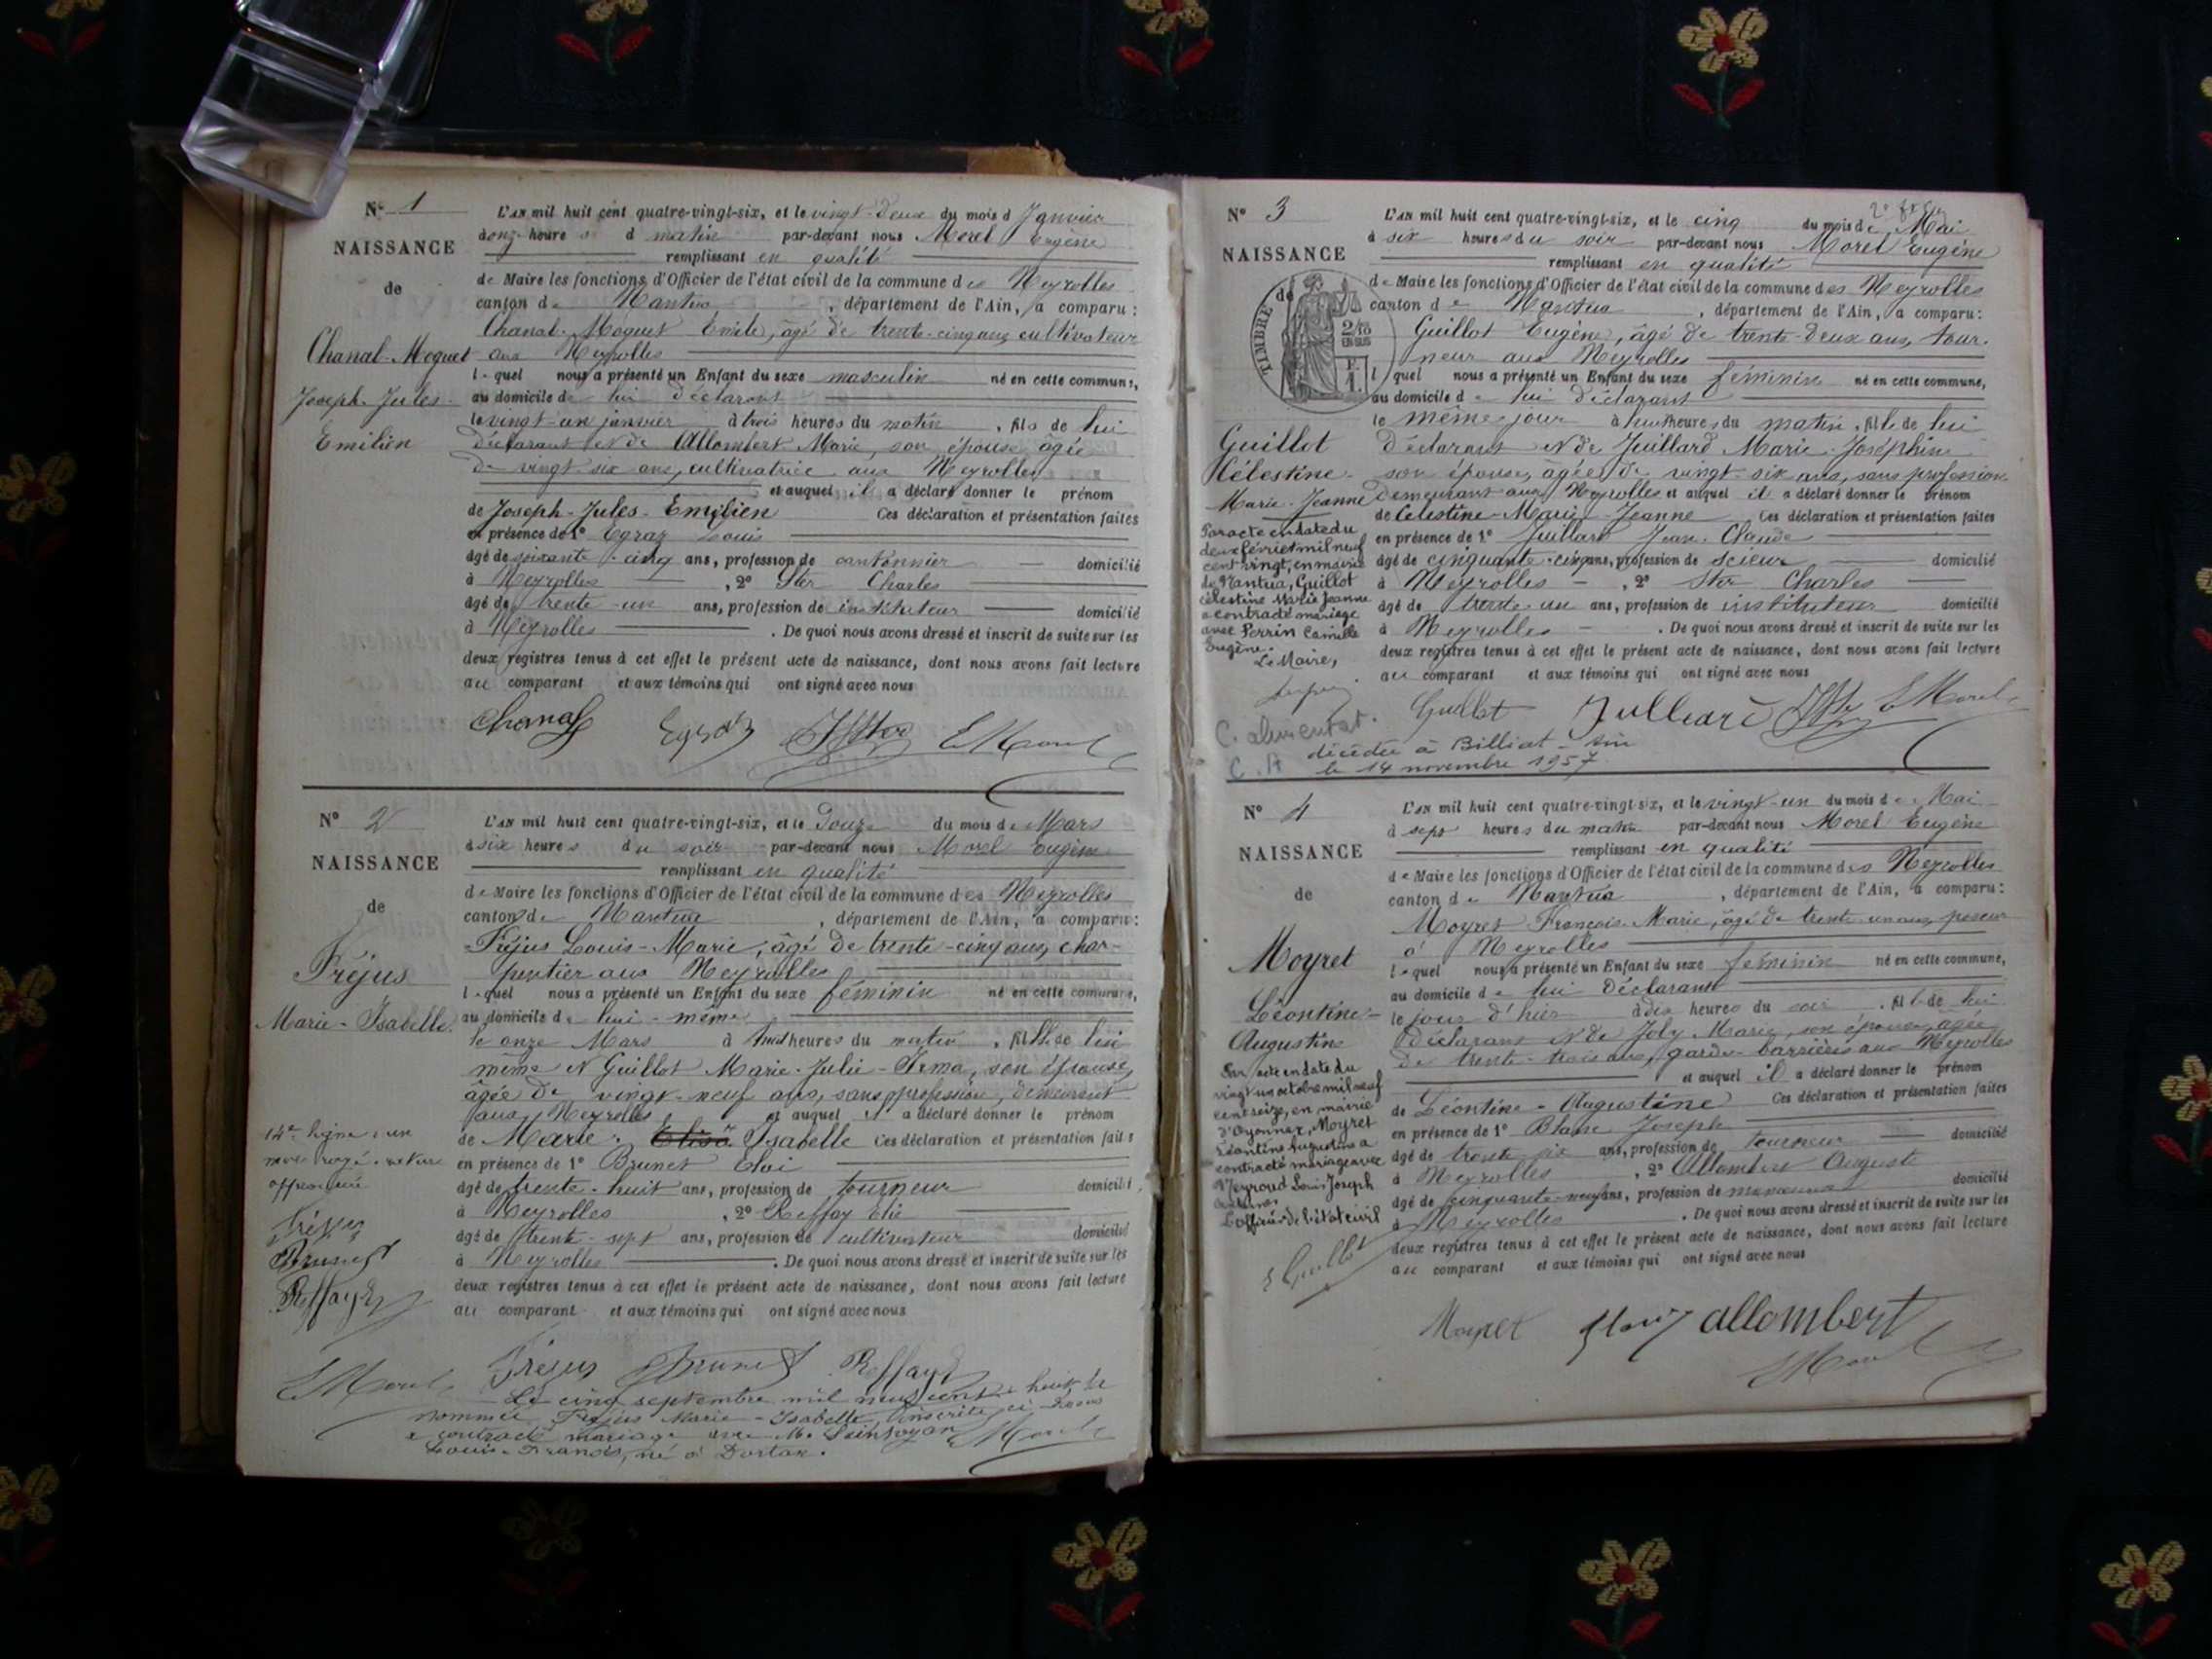 N° 1
NAISSANCE
de
Chanal-Moquet
Joseph-Jules-
Emilien
L'AN mil huit cent quatre-vingt-six, et le vingt-deux du mois d Janvier
à onze heures d matin par-devant nous Morel Eugène
remplissant en qualité
de Maire les fonctions d'Officier de l'état civil de la commune des Neyrolles
canton de Nantua, département de l'Ain, a comparu:
Chanal-Moquet Emile, âgé de trente-cinq ans, cultivateur
aux Neyrolles
lequel nous a présenté un Enfant du sexe masculin né en cette commune,
au domicile de lui déclarant
le vingt-un janvier à trois heures du matin, fils de lui
déclarant et de Allombert Marie, son épouse âgée
de vingt six ans, cultivatrice aux Neyrolles
et auquel il a déclaré donner le prénom
de Joseph-Jules-Emilien Ces déclaration et présentation faites
en présence de 1° Egraz Louis
âgé de soixante-cinq ans, profession de cantonnier domicilié
à Neyrolles, 2° Ster Charles
âgé de trente-un ans, profession de instituteur domicilié
à Neyrolles. De quoi nous avons dressé et inscrit de suite sur les
deux registres tenus à cet effet le présent acte de naissance, dont nous avons fait lecture
au comparant et aux témoins qui ont signé avec nous
Chanal Egraz Ster E Morel
N° 2
NAISSANCE
de
Fréjus
Marie-Isabelle.
L'AN mil huit cent quatre-vingt-six, et le Douze du mois de Mars
à six heures du soir par-devant nous Morel Eugène
remplissant en qualité
de Maire les fonctions d'Officier de l'état civil de la commune des Neyrolles
canton de Nantua, département de l'Ain, a comparu:
Fréjus Louis-Marie, âgé de trente-cinq ans, char-
pentier aux Neyrolles
lequel nous a présenté un Enfant du sexe féminin né en cette commune,
au domicile de lui-même
le onze Mars à huit heures du matin, fille de lui
même et Guillot Marie-Julie-Irma, son épouse,
âgée de vingt-neuf ans, sans profession, demeurant
aux Neyrolles et auquel il a déclaré donner le prénom
de Marie-Isabelle Ces déclaration et présentation faites
en présence de 1° Brunet Eloi
âgé de trente-huit ans, profession de tourneur domicilié
à Neyrolles, 2° Reffay Elie
âgé de trente-sept ans, profession de cultivateur domicilié
à Neyrolles. De quoi nous avons dressé et inscrit de suite sur les
deux registres tenus à cet effet le présent acte de naissance, dont nous avons fait lecture
au comparant et aux témoins qui ont signé avec nous
14e ligne, un
mot rayé
Fréjus
Brunet
Reffay E
E Morel Fréjus Brunet Reffay E
Le cinq septembre mil neuf cent huit la
nommée Fréjus Marie-Isabelle, inscrite ci-dessus
a contracté mariage avec M.
Louis-Francis, né à Dortan. E Morel
N° 3
NAISSANCE
de
TIMBRE
2/10 EN SUS
Guillot
Célestine-
Marie-Jeanne
L'AN mil huit cent quatre-vingt-six, et le cinq du mois de Mai
à six heures du soir par-devant nous Morel Eugène
remplissant en qualité
de Maire les fonctions d'Officier de l'état civil de la commune des Neyrolles
canton de Nantua, département de l'Ain, a comparu:
Guillot Eugène, âgé de trente-deux ans, tour-
neur aux Neyrolles
lequel nous a présenté un Enfant du sexe féminin né en cette commune,
au domicile de lui déclarant
le même jour à huit heures du matin, fille de lui
déclarant et de Juillard Marie-Joséphine
son épouse, âgée de vingt-six ans, sans profession,
demeurant aux Neyrolles et auquel il a déclaré donner le prénom
de Célestine-Marie-Jeanne Ces déclaration et présentation faites
en présence de 1° Juillard Jean-Claude
âgé de cinquante-cinq ans, profession de scieur domicilié
à Neyrolles, 2° Ster Charles
âgé de trente-un ans, profession de instituteur domicilié
à Neyrolles. De quoi nous avons dressé et inscrit de suite sur les
deux registres tenus à cet effet le présent acte de naissance, dont nous avons fait lecture
au comparant et aux témoins qui ont signé avec nous
Par acte en date du
deux février mil neuf
cent vingt, en mairie
de Nantua, Guillot
Célestine Marie Jeanne
a contracté mariage
avec Perrin Camille
Eugène.
Le Maire,
Guillot Julliard Ster E Morel
C. alimentat.
C. A
décédée à Billiat - Ain
le 14 novembre 1957
N° 4
NAISSANCE
de
Moyret
Léontine-
Augustine
L'AN mil huit cent quatre-vingt-six, et le vingt-un du mois de Mai
à sept heures du matin par-devant nous Morel Eugène
remplissant en qualité
de Maire les fonctions d'Officier de l'état civil de la commune des Neyrolles
canton de Nantua, département de l'Ain, a comparu:
Moyret François-Marie, âgé de trente-un ans, poseur
à Neyrolles
lequel nous a présenté un Enfant du sexe féminin né en cette commune,
au domicile de lui déclarant
le jour d'hier à dix heures du soir, fille de lui
déclarant et de Joly Marie, son épouse, âgée
de trente-trois ans, garde-barrières aux Neyrolles
et auquel il a déclaré donner le prénom
de Léontine-Augustine Ces déclaration et présentation faites
en présence de 1° Blanc Joseph
âgé de trente six ans, profession de tourneur domicilié
à Neyrolles, 2° Allombert Auguste
âgé de cinquante-neuf ans, profession de domicilié
à Neyrolles. De quoi nous avons dressé et inscrit de suite sur les
deux registres tenus à cet effet le présent acte de naissance, dont nous avons fait lecture
au comparant et aux témoins qui ont signé avec nous
Par acte en date du
vingt un octobre mil neuf
cent seize, en mairie
d'Oyonnax, Moyret
Léontine Augustine a
contracté mariage avec
Meyroud Louis Joseph
L'officier de l'état civil
Guillot
Moyret Blanc allombert
E Morel